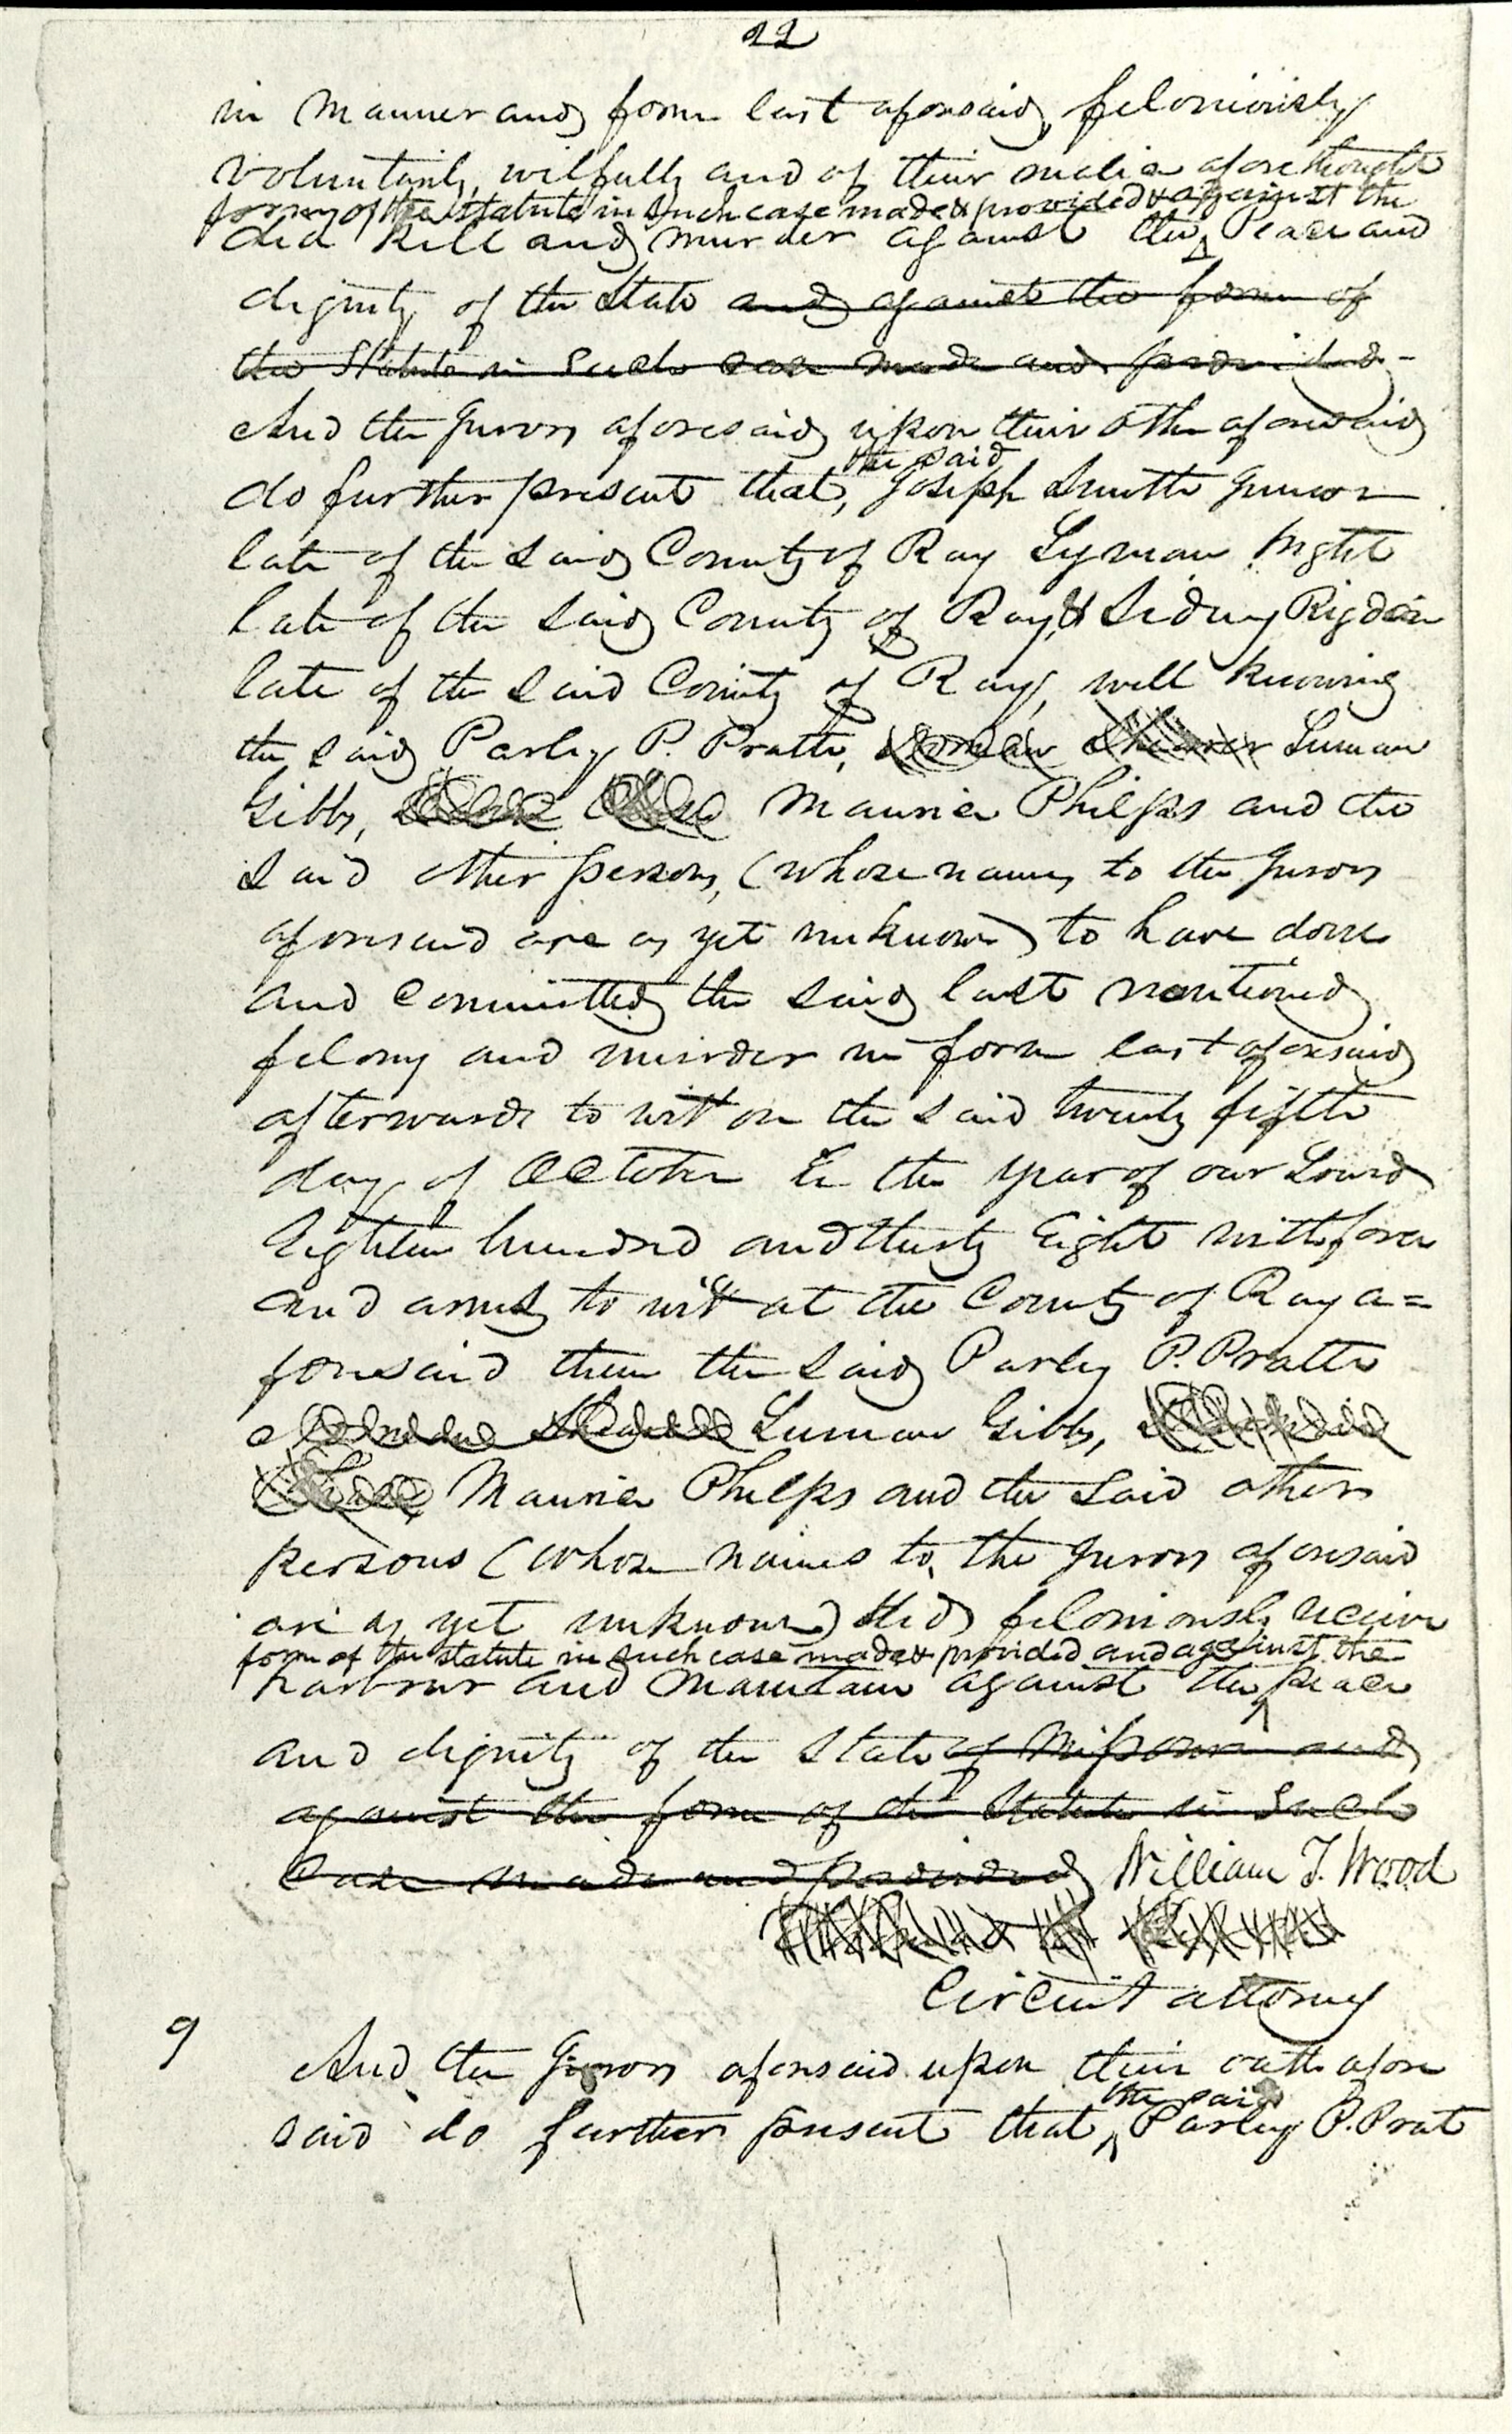 22
in manner and form last aforesaid, feloniously
voluntarily, wilfully and of their malice aforethought
form of the statute in such case made & provided & against the
did kill and murder against the Peace and
dignity of the State and against the form of
the Statute in such case made and provided -
And the Jurors aforesaid upon their oth aforesaid
the said
do further present that, Joseph Smith Junior
late of the said County of Ray Lyman Wight
late of the said County of Ray, & Sidney Rigdon
late of the said County of Ray, well knowing
the said Parley P. Pratt, Norman Shearer Luman
Gibbs, Maurice Phelps and the
said other persons, (whose names to the Jurors
aforesaid are as yet unknown) to have done
and committed the said last mentioned
felony and murder in form last aforesaid
afterwards to wit on the said twenty fifth
day of October in the year of our Lord
Eighteen hundred and thirty Eight with force
and arms to wit at the County of Ray a=
foresaid them the said Parley P. Pratt
Luman Gibbs,
Maurice Phelps and the said other
persons (whose names to the Jurors aforesaid
are as yet unknown) did feloniously receive
form of the statute in such case made & provided and against the
harbour and maintain against the peace
and dignity of the State of Missouri and
against the form of the Statute in such
case made and provided William T. Wood
Circuit attorney
9
And the Jurors aforesaid upon their oath afore
the said
said do further present that Parley P. Prat